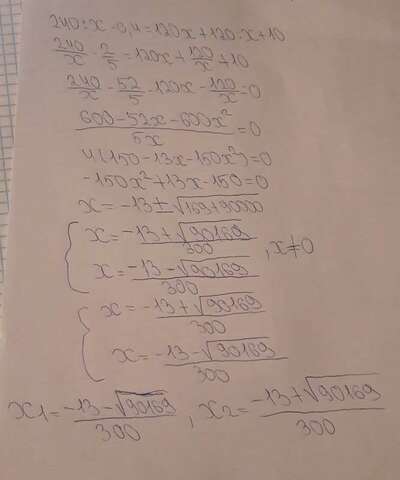 240:x-0,4=120x+120:x+10
240/x-2/5=120x+120/x+10
240/x-52/5-120x-120/x=0
600-52x-600x²/5x=0
4(150-13x-150x²)=0
-150x²+13x-150=0
x=-13±√169+90000
{x=-13+√90169/300
x=-13-√90169/300 , x≠0
{x=-13+√90169/300
x=-13-√90169/300
x1=-13-√90169/300 , x2=-13+√90169/300